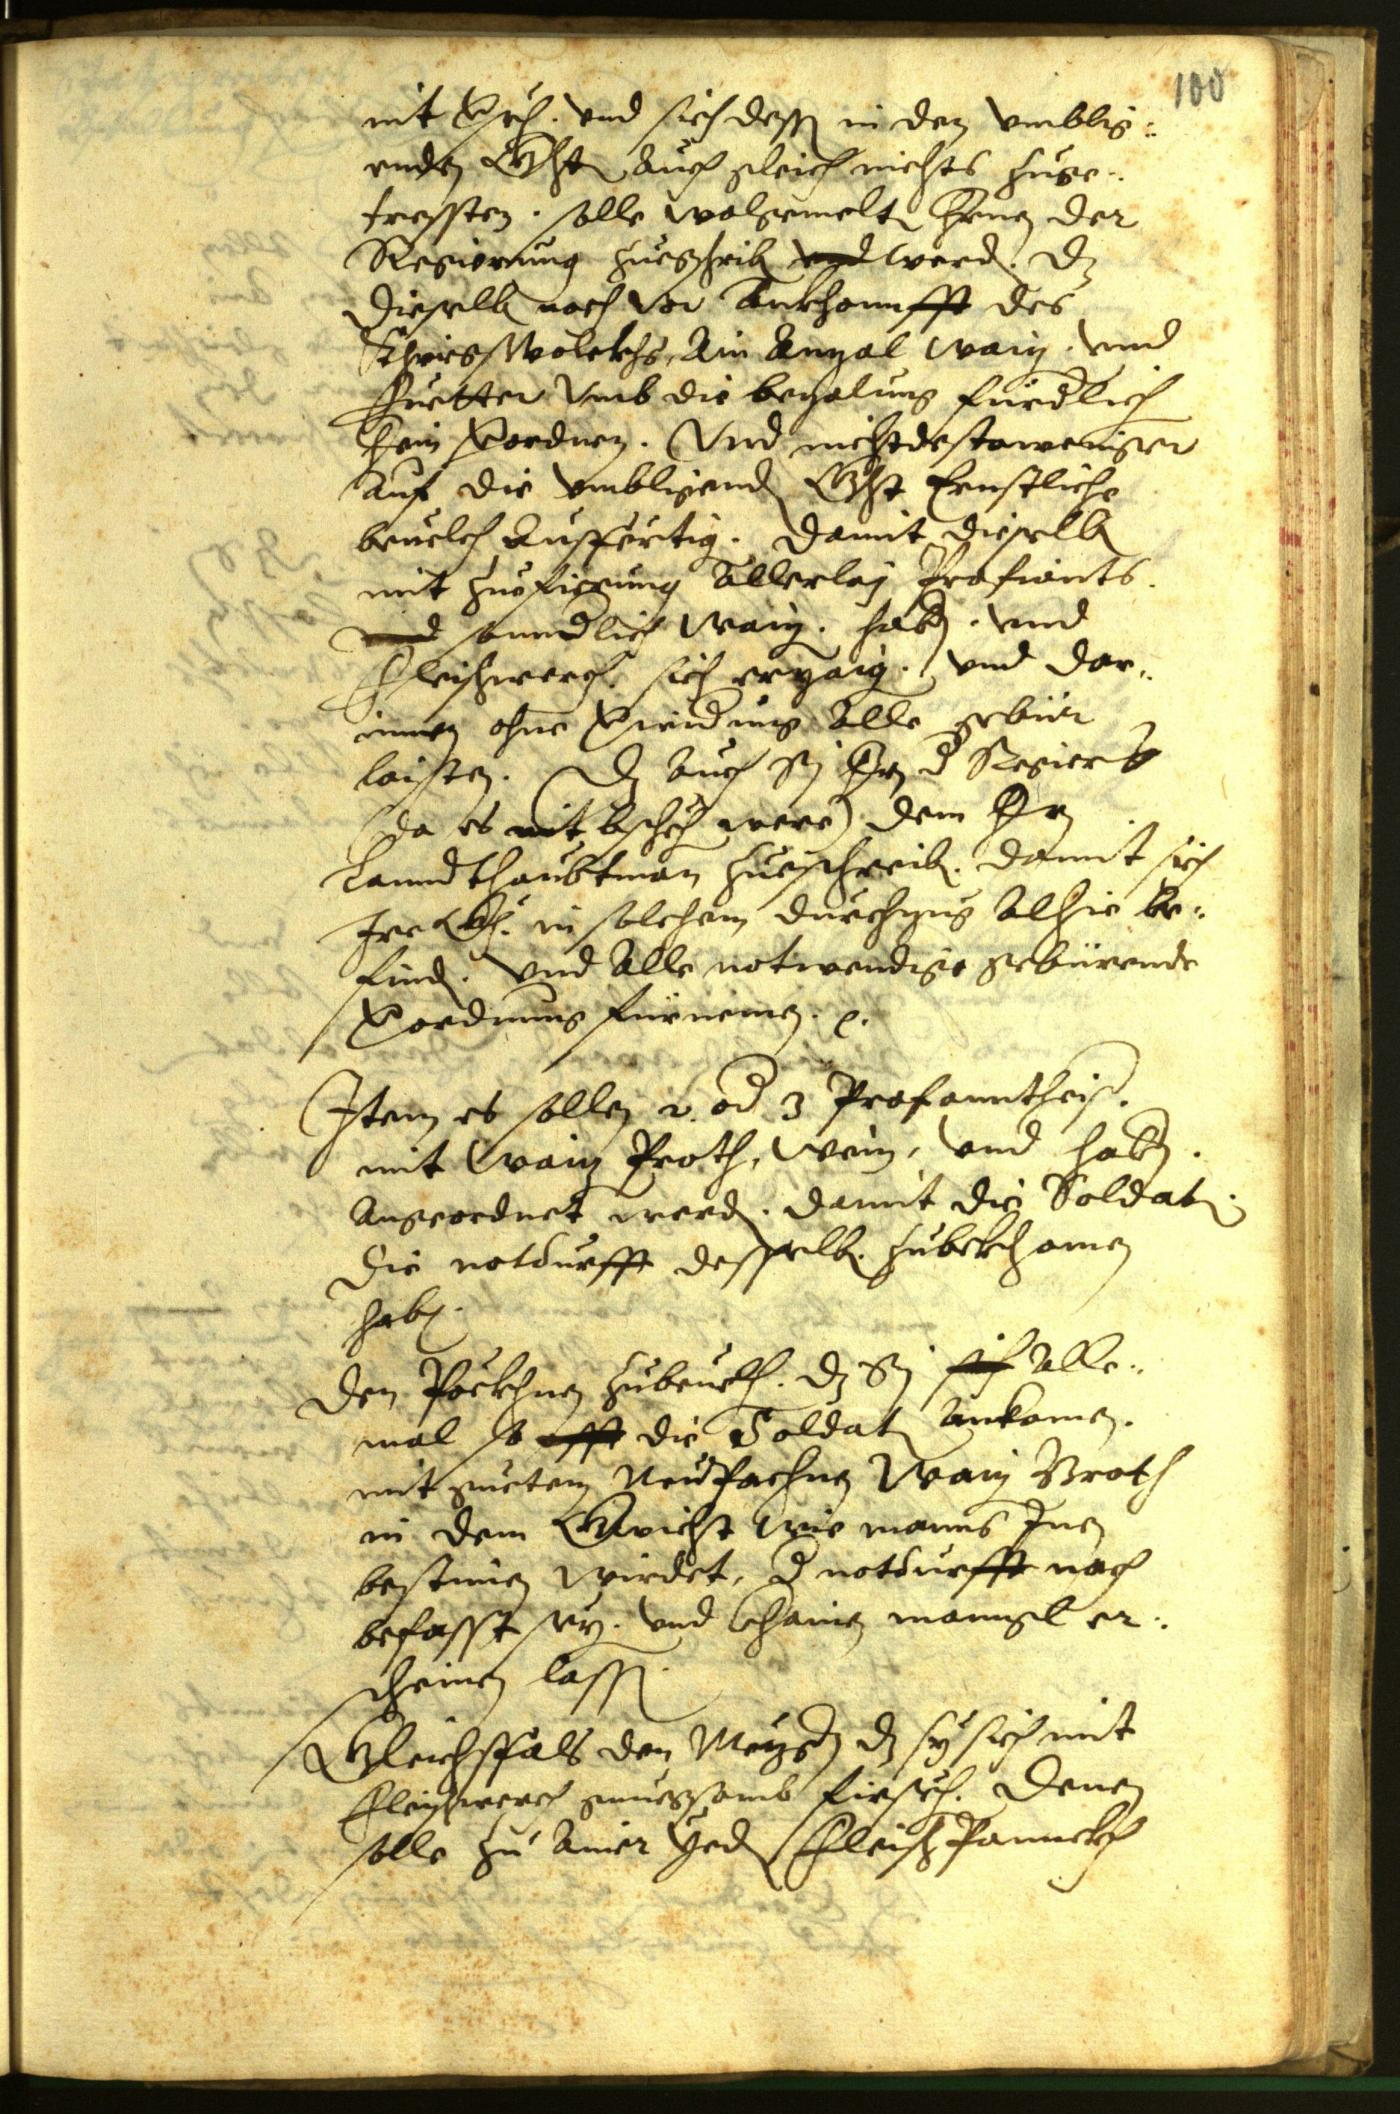 100
nit versech. und sich dess in den umblig„
enden Ghten auch gleich nichts zuge„
tressten. solle wolgemelten Herrn der
Regierung zuegschriben werden. dz
dieselb noch vor Ankhonnfft des
Khriegsvolckhs, Ain Anzal Waiz. und
Fuetter umb die bezalung fürdlich
hein verordnen. Und nichtdestoweniger
auf die umbligenden Ght Ernstliche
bevelch Ausfertig. damit dieselben
mit zuefierung Allerlaj Profiants.
sonndlich Waiz. habern. und
Fleischwerch. sich erzaig. und dar„
innen ohne verwidrung Alle gebür
laisten. Dz auch Sy Hrn d Regierung
(da es nit beschechen were) dem Hrn
Lanndthaubtman zueschreiben. damit sich
Ire Gn. in solchem durchzug Alhie be„
finden. und Alle notwendige gebürende
verordnung fürnemen. etc.
Item es sollen 2. od 3 Profanntheiser.
mit Waiz Proth, Wein, und habern.
Angeordnet werden. damit die Soldaten.
die notdurfft desselben. zubekhomen
haben.
Den Pöckhnen zubevelch. dz Sy Alle„
mal so die Soldaten ankomen.
mit guetem Neupachnen Waiz Broth
in dem Gwicht wie manns Inen
bestimen wirdet, d notdurfft nach
befasst sey. und khainen mangl er„
scheinen lassen.
Gleichsfals den Mezgern dz sy sich mit
Fleischwerch gnuegsamb firsech. Denen
solle zu Ainer yeden Fleisch Pannckh